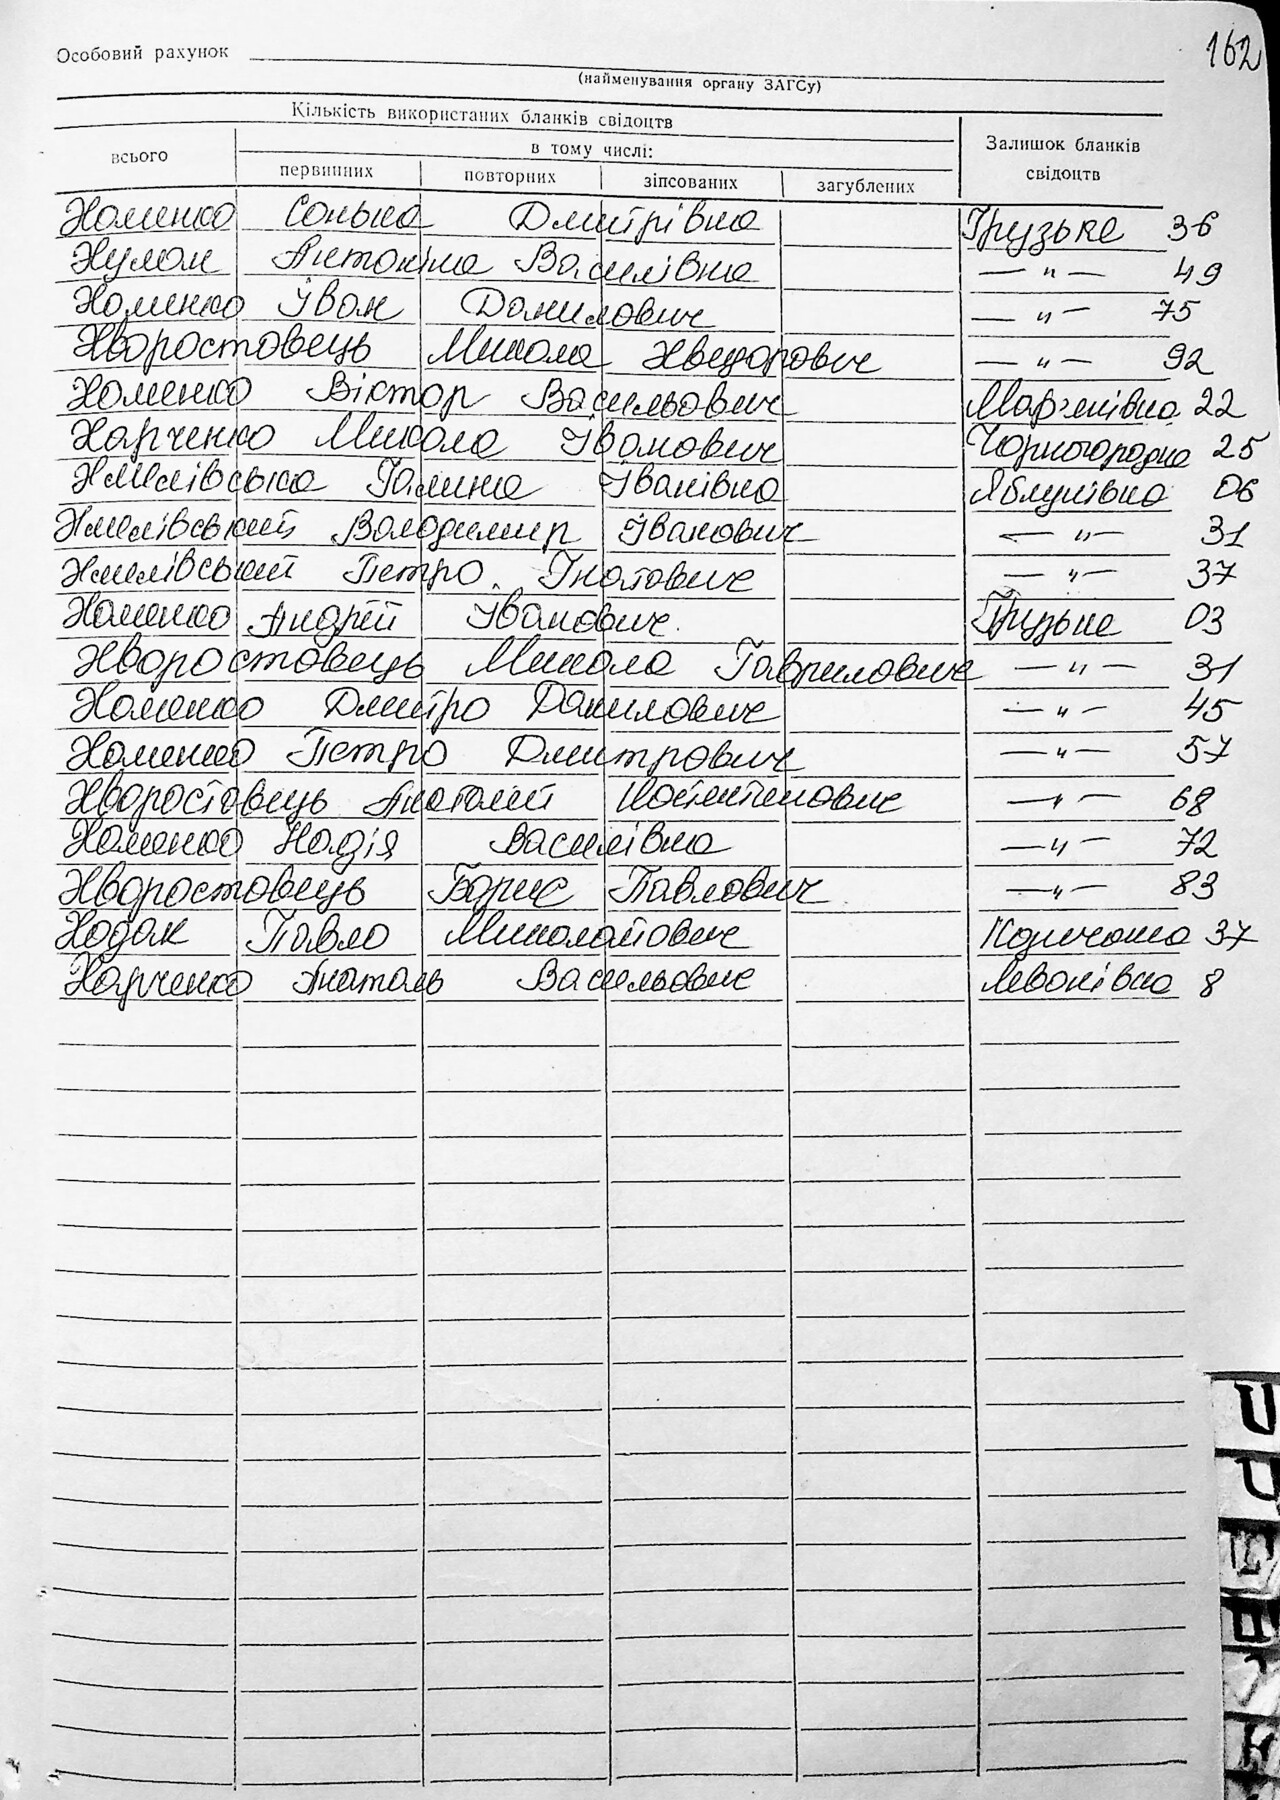 162
Особовий рахунок
(найменування органу ЗАГСу)
Кількість використаних бланків свідоцтв
всього
в тому числі:
первинних повторних зіпсованих загублених
Залишок бланків свідоцтв
Хоменко Сонька Дмитрівна Грузьке 36
Хулан Антоніна Василівна — " — 49
Хоменко Іван Данилович — " — 75
Хворостовець Микола Хведорович — " — 92
Хоменко Віктор Васильович Мар'янівка 22
Харченко Микола Іванович Чорногородка 25
Хмелівська Галина Іванівна Яблунівка 06
Хмелівський Володимир Іванович — " — 31
Хмелівський Петро Гнатович — " — 37
Хоменко Андрій Іванович Грузьке 03
Хворостовець Микола Гаврилович — " — 31
Хоменко Дмитро Данилович — " — 45
Хоменко Петро Дмитрович — " — 57
Хворостовець Анатолій Костянтинович — " — 68
Хоменко Надія Василівна — " — 72
Хворостовець Борис Павлович — " — 83
Ходак Павло Миколайович 37
Харченко Анатоль Васильович Леонівка 8